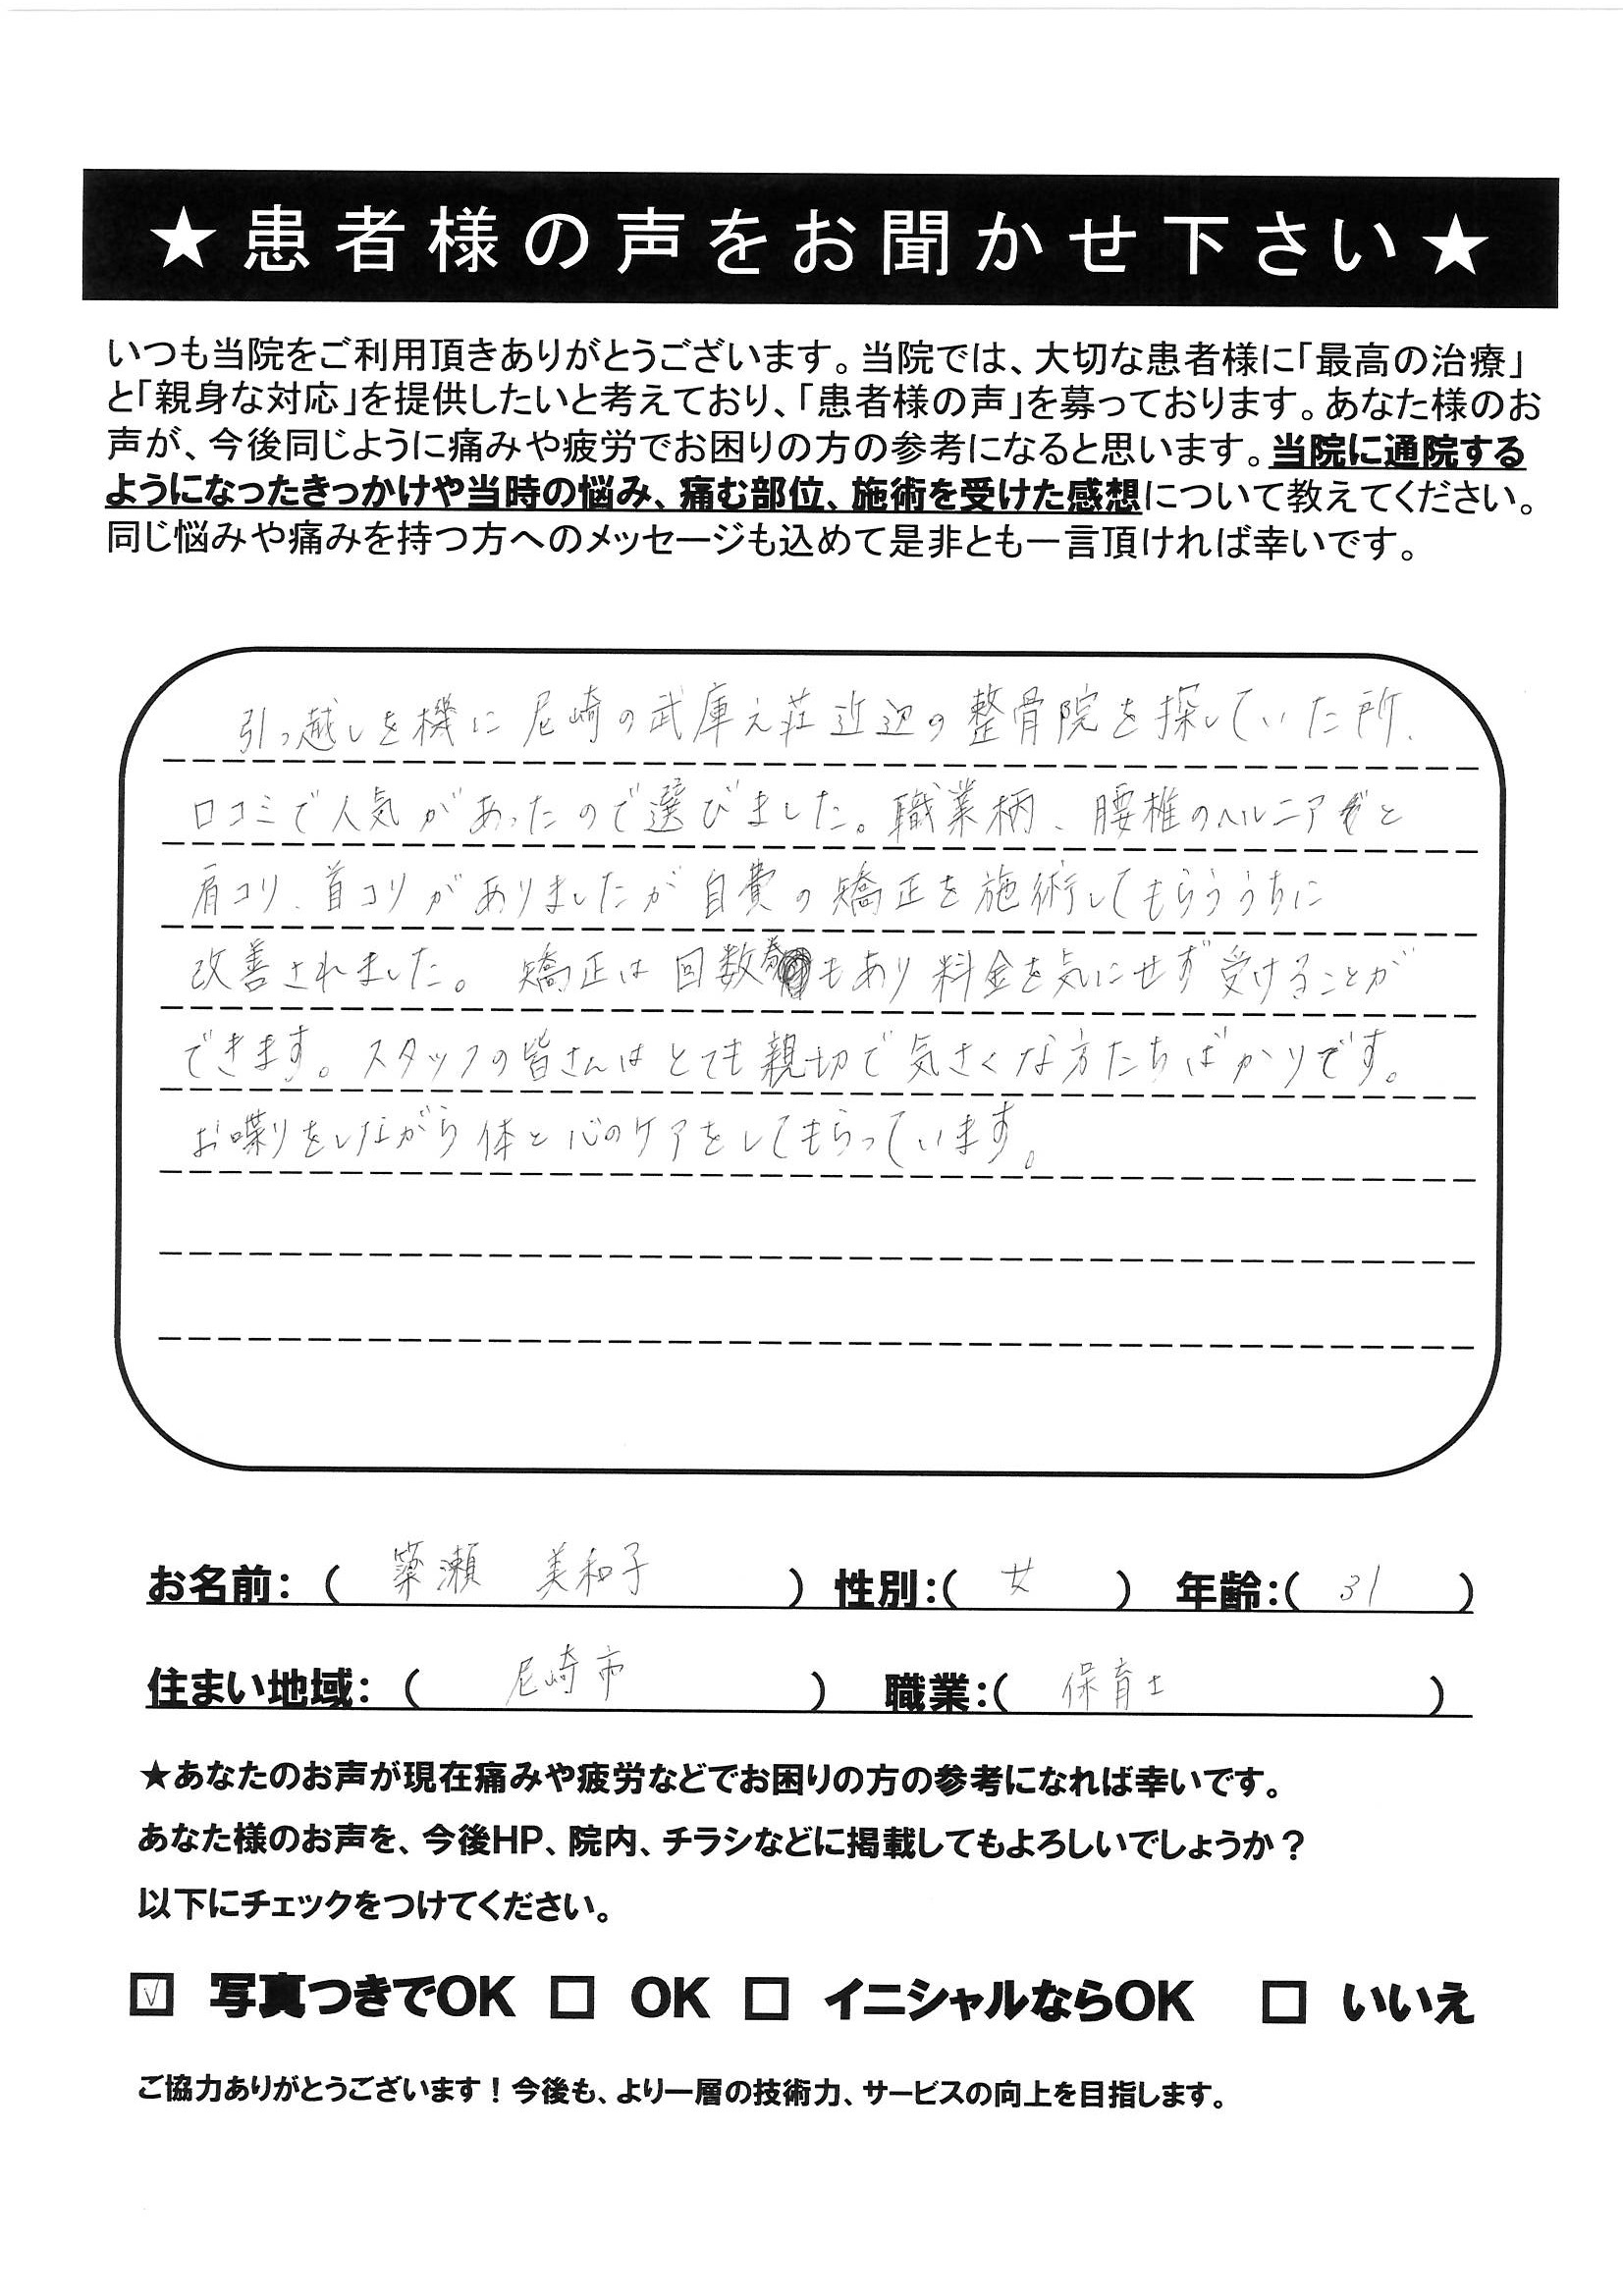 ★患者様の声をお聞かせ下さい★
いつも当院をご利用頂きありがとうございます。当院では、大切な患者様に「最高の治療」
と「親身な対応」を提供したいと考えており、「患者様の声」を募っております。あなた様のお
声が、今後同じように痛みや疲労でお困りの方の参考になると思います。当院に通院する
ようになったきっかけや当時の悩み、痛む部位、施術を受けた感想について教えてください。
同じ悩みや痛みを持つ方へのメッセージも込めて是非とも一言頂ければ幸いです。
引っ越しを機に尼崎の武庫之荘近辺の整骨院を探していた所、
口コミで人気があったので選びました。職業柄、腰椎のヘルニアと
肩コリ、首コリがありましたが自費の矯正を施術してもらううちに
改善されました。矯正は回数券もあり料金を気にせず受けることが
できます。スタッフの皆さんはとても親切で気さくな方たちばかりです。
お喋りをしながら体と心のケアをしてもらっています。
お名前：（ 瀬 美和子 ） 性別：（ 女 ） 年齢：（ 31 ）
住まい地域：（ 尼崎市 ） 職業：（ 保育士 ）
★あなたのお声が現在痛みや疲労などでお困りの方の参考になれば幸いです。
あなた様のお声を、今後HP、院内、チラシなどに掲載してもよろしいでしょうか？
以下にチェックをつけてください。
☑ 写真つきでOK □ OK □ イニシャルならOK □ いいえ
ご協力ありがとうございます！今後も、より一層の技術力、サービスの向上を目指します。